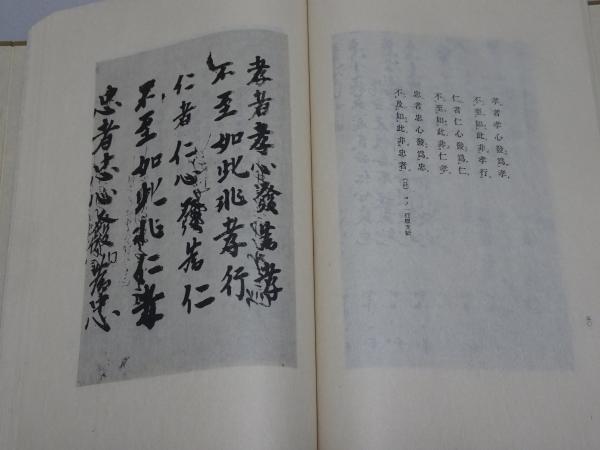 孝者孝心發爲孝
不至如此非孝行
仁者仁心發爲仁
不至如此非仁孝
忠者忠心發爲忠
不及如此非忠者
孝者孝心發爲孝
不至如此非孝行
仁者仁心發爲仁
不至如此非仁孝
忠者忠心發爲忠